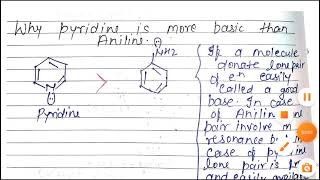 Why pyridine is more basic than
Aniline.
NH2
N
>
Pyridine
If a molecule
donate lone pair
of e⁻ easily
called a good
base. In case
of Anilin
pair involve
resonance
case of
lone pair is
and easily